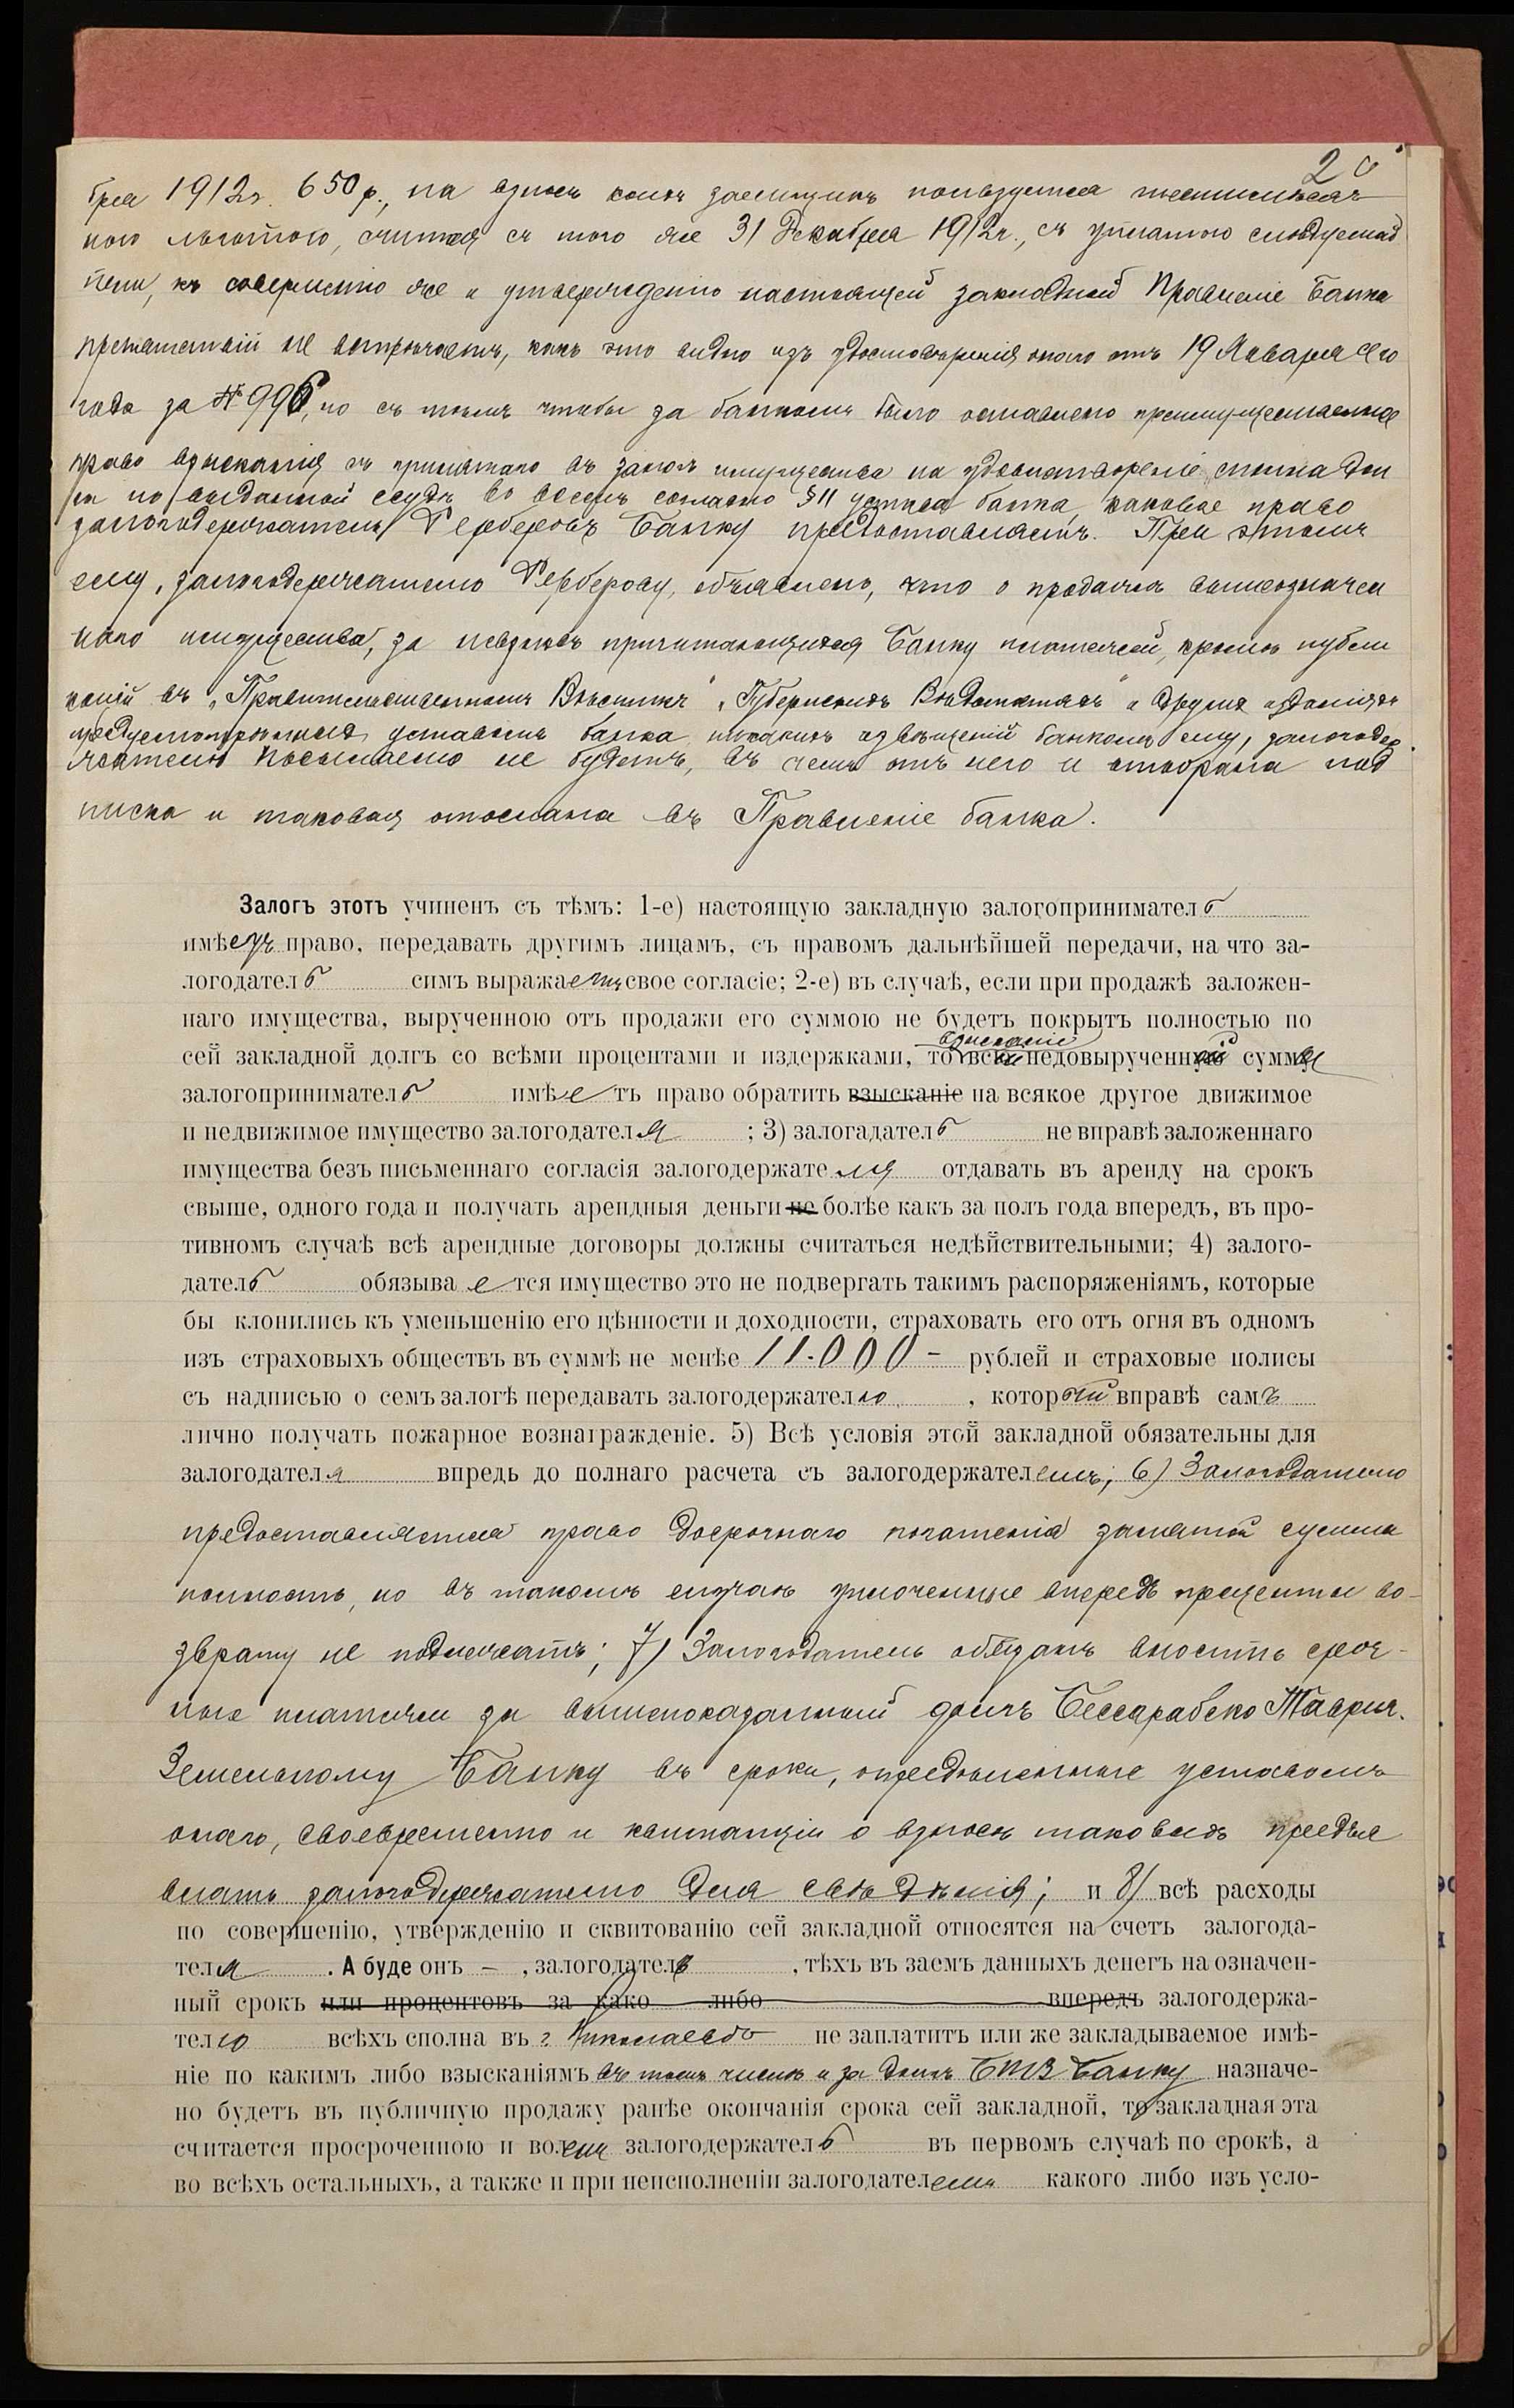 20
бря 1912г. 650 р., на взносъ коихъ заемщикъ пользуется шестимѣсяч
ною льготою, считая съ того же 31 Декабря 1912г., съ уплатою слѣдуемой
пени, къ совершенію же и утвержденію настоящей закладной Правленіе Банка
препятствій не встрѣчаетъ, какъ это видно изъ удостовѣренія онаго отъ 19 Января сего
года за № 996, но съ тѣмъ чтобы за банкомъ было оставлено преимущественное
право взысканія съ принятаго въ залогъ имущества на удовлетвореніе
по выданной ссудѣ во всемъ согласно §11 устава банка, каковое право
залогодержатель Герберовъ Банку предоставляетъ. При этомъ
ему, залогодержателю Герберову, объявлено, что о продажѣ вышеозначен
наго имущества, за невзносъ причитающихся Банку платежей, кромѣ публи
кацій въ „Правительственномъ Вѣстникѣ" „Губернскихъ Вѣдомостяхъ" и другихъ изданіяхъ
предусмотрѣнныхъ уставомъ банка никакихъ извѣщеній банкомъ ему, залогодер
жателю посылаемо не будетъ, въ чемъ отъ него и отобрана под
писка и таковая отослана въ Правленіе банка.
Залогъ этотъ учиненъ съ тѣмъ: 1-е) настоящую закладную залогоприниматель
имѣетъ право, передавать другимъ лицамъ, съ правомъ дальнѣйшей передачи, на что за-
логодатель симъ выражаетъ свое согласіе; 2-е) въ случаѣ, если при продажѣ заложен-
наго имущества, вырученною отъ продажи его суммою не будетъ покрытъ полностью по
взысканіе
сей закладной долгъ со всѣми процентами и издержками, то всей недовырученной суммы
залогоприниматель имѣетъ право обратить взысканіе на всякое другое движимое
и недвижимое имущество залогодателя ; 3) залогадатель не вправѣ заложеннаго
имущества безъ письменнаго согласія залогодержателя отдавать въ аренду на срокъ
свыше, одного года и получать арендныя деньги не болѣе какъ за полъ года впередъ, въ про-
тивномъ случаѣ всѣ арендные договоры должны считаться недѣйствительными; 4) залого-
датель обязывается имущество это не подвергать такимъ распоряженіямъ, которые
бы клонились къ уменьшенію его цѣнности и доходности, страховать его отъ огня въ одномъ
изъ страховыхъ обществъ въ суммѣ не менѣе 11.000 – рублей и страховые полисы
съ надписью о семъ залогѣ передавать залогодержателю , который вправѣ самъ
лично получать пожарное вознагражденіе. 5) Всѣ условія этой закладной обязательны для
залогодателя впредь до полнаго расчета съ залогодержателемъ; 6) Залогодателю
предоставляется право досрочнаго погашенія занятой суммы
полность, но въ такомъ случаѣ уплоченные впередъ проценты во-
зврату не подлежатъ; 7) Залогодатель обязанъ вносить сроч-
ные платежи за вышепоказанный долгъ Бессарабско Таврич.
Земельному Банку въ сроки, опредѣленные уставомъ
онаго, своевременно и квитанціи о взносѣ таковыхъ предъя
влять залогодержателю для свѣдѣнія; и 8) всѣ расходы
по совершенію, утвержденію и сквитованію сей закладной относятся на счетъ залогода-
теля . А буде онъ – , залогодатель , тѣхъ въ заемъ данныхъ денегъ на означен-
ный срокъ или процентовъ за како либо впередъ залогодержа-
телю всѣхъ сполна въ г. Николаевѣ не заплатитъ или же закладываемое имѣ-
ніе по какимъ либо взысканіямъ въ томъ числѣ и за долгъ БТЗ Банку назначе-
но будетъ въ публичную продажу ранѣе окончанія срока сей закладной, то закладная эта
считается просроченною и воленъ залогодержатель въ первомъ случаѣ по срокѣ, а
во всѣхъ остальныхъ, а также и при неисполненіи залогодателемъ какого либо изъ усло-